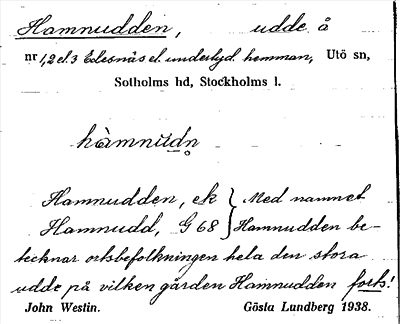 Hamnudden, udde å
nr 1, 2 el. 3 Edesnäs el. underlyd. hemman, Utö sn,
Sotholms hd, Stockholms l.
hàmnùdn̥
Hamnudden, ek } Med namnet
Hamnudd, G 68 } Hamnudden be-
tecknar ortsbefolkningen hela den stora
udde på vilken gården Hamnudden forts!
John Westin. Gösta Lundberg 1938.